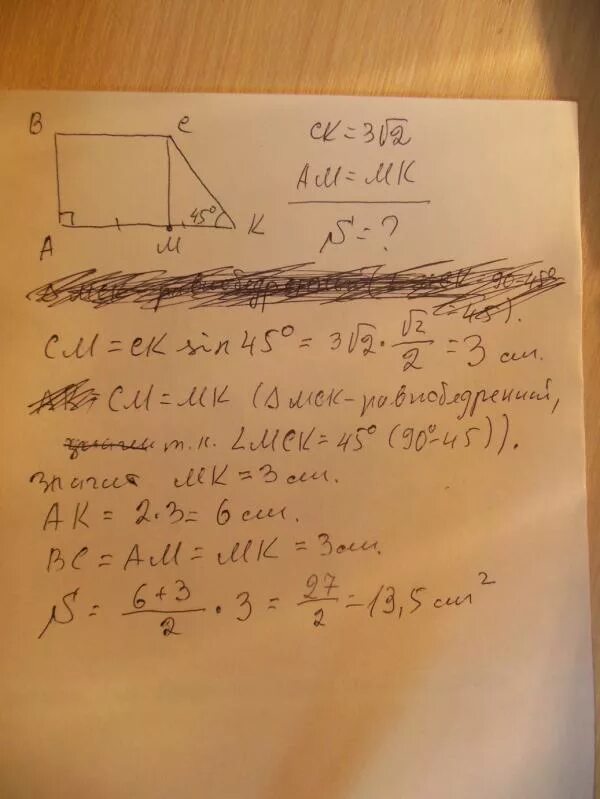 B C
CK = 3√2
AM = MK
45°
A M K
S = ?
CM = CK sin 45° = 3√2 · √2/2 = 3 см.
CM = MK (ΔМСК - равнобедренний,
т.к. ∠MCK = 45° (90° - 45)).
значит MK = 3 см.
AK = 2·3 = 6 см.
BC = AM = MK = 3 см.
S = (6+3)/2 · 3 = 27/2 = 13,5 см²